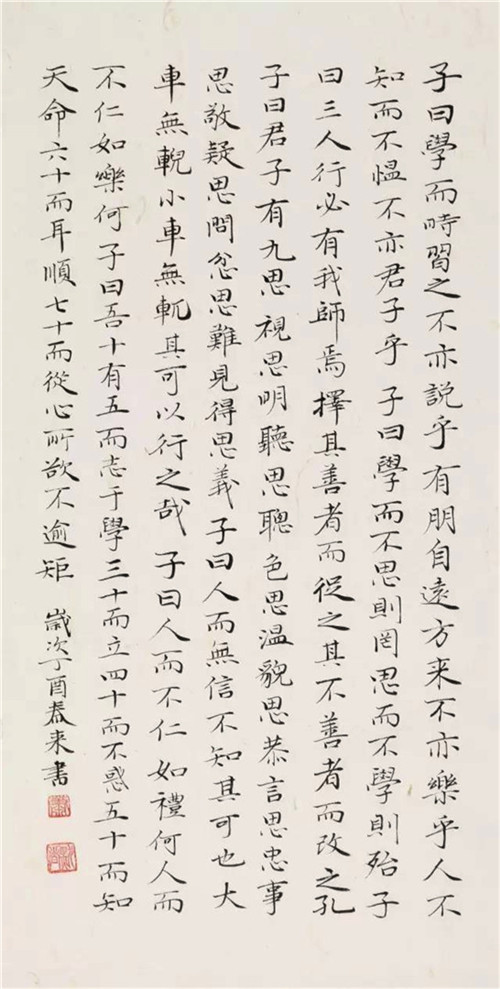 子曰學而時習之不亦説乎有朋自遠方来不亦樂乎人不
知而不愠不亦君子乎子曰學而不思則罔思而不學則殆子
曰三人行必有我師焉擇其善者而從之其不善者而改之孔
子曰君子有九思視思明聽思聰色思温貌思恭言思忠事
思敬疑思問忿思難見得思義子曰人而無信不知其可也大
車無輗小車無軏其可以行之哉子曰人而不仁如禮何人而
不仁如樂何子曰吾十有五而志于學三十而立四十而不惑五十而知
天命六十而耳順七十而從心所欲不逾矩 歲次丁酉春来書